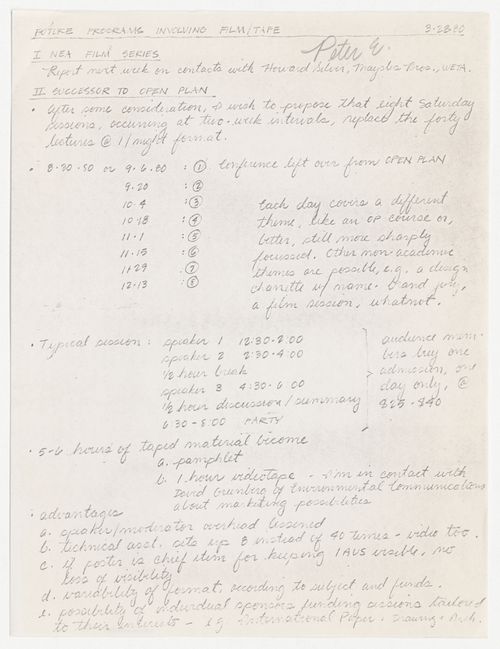 FUTURE PROGRAMS INVOLVING FILM/TAPE 3-28-80
Peter E.
I NEA FILM SERIES
Report next week on contacts with Howard Silver, Maysles Bros., WETA.
II SUCCESSOR TO OPEN PLAN
• After some consideration, I wish to propose that eight Saturday
sessions, occurring at two-week intervals, replace the forty
lectures @ 1/night format.
• 8-30-80 or 9-6-80 : ① Conference left over from OPEN PLAN
9-20 : ②
10-4 : ③ Each day covers a different
10-18 : ④ theme, like an OP course or,
11-1 : ⑤ better, still more sharply
11-15 : ⑥ focussed. Other non-academic
11-29 : ⑦ themes are possible, e.g. a design
12-13 : ⑧ charrette w/ name-brand jury,
a film session, whatnot.
• Typical session : speaker 1 12:30-2:00 audience mem-
speaker 2 2:30-4:00 bers buy one
1/2 hour break admission, one
speaker 3 4:30-6:00 day only, @
1/2 hour discussion/summary $25-$40
6:30-8:00 PARTY
• 5-6 hours of taped material become
a. pamphlet
b. 1 hour videotape - I'm in contact with
David Greenberg of Environmental Communications
about marketing possibilities
• advantages
a. speaker/moderator overhead lessened
b. technical asst. sets up 8 instead of 40 times - video too.
c. if poster is chief item for keeping IAUS visible, no
loss of visibility
d. variability of format, according to subject and funds.
e. possibility of individual sponsors funding sessions tailored
to their interests - e.g. International Paper - Drawing - Arch.